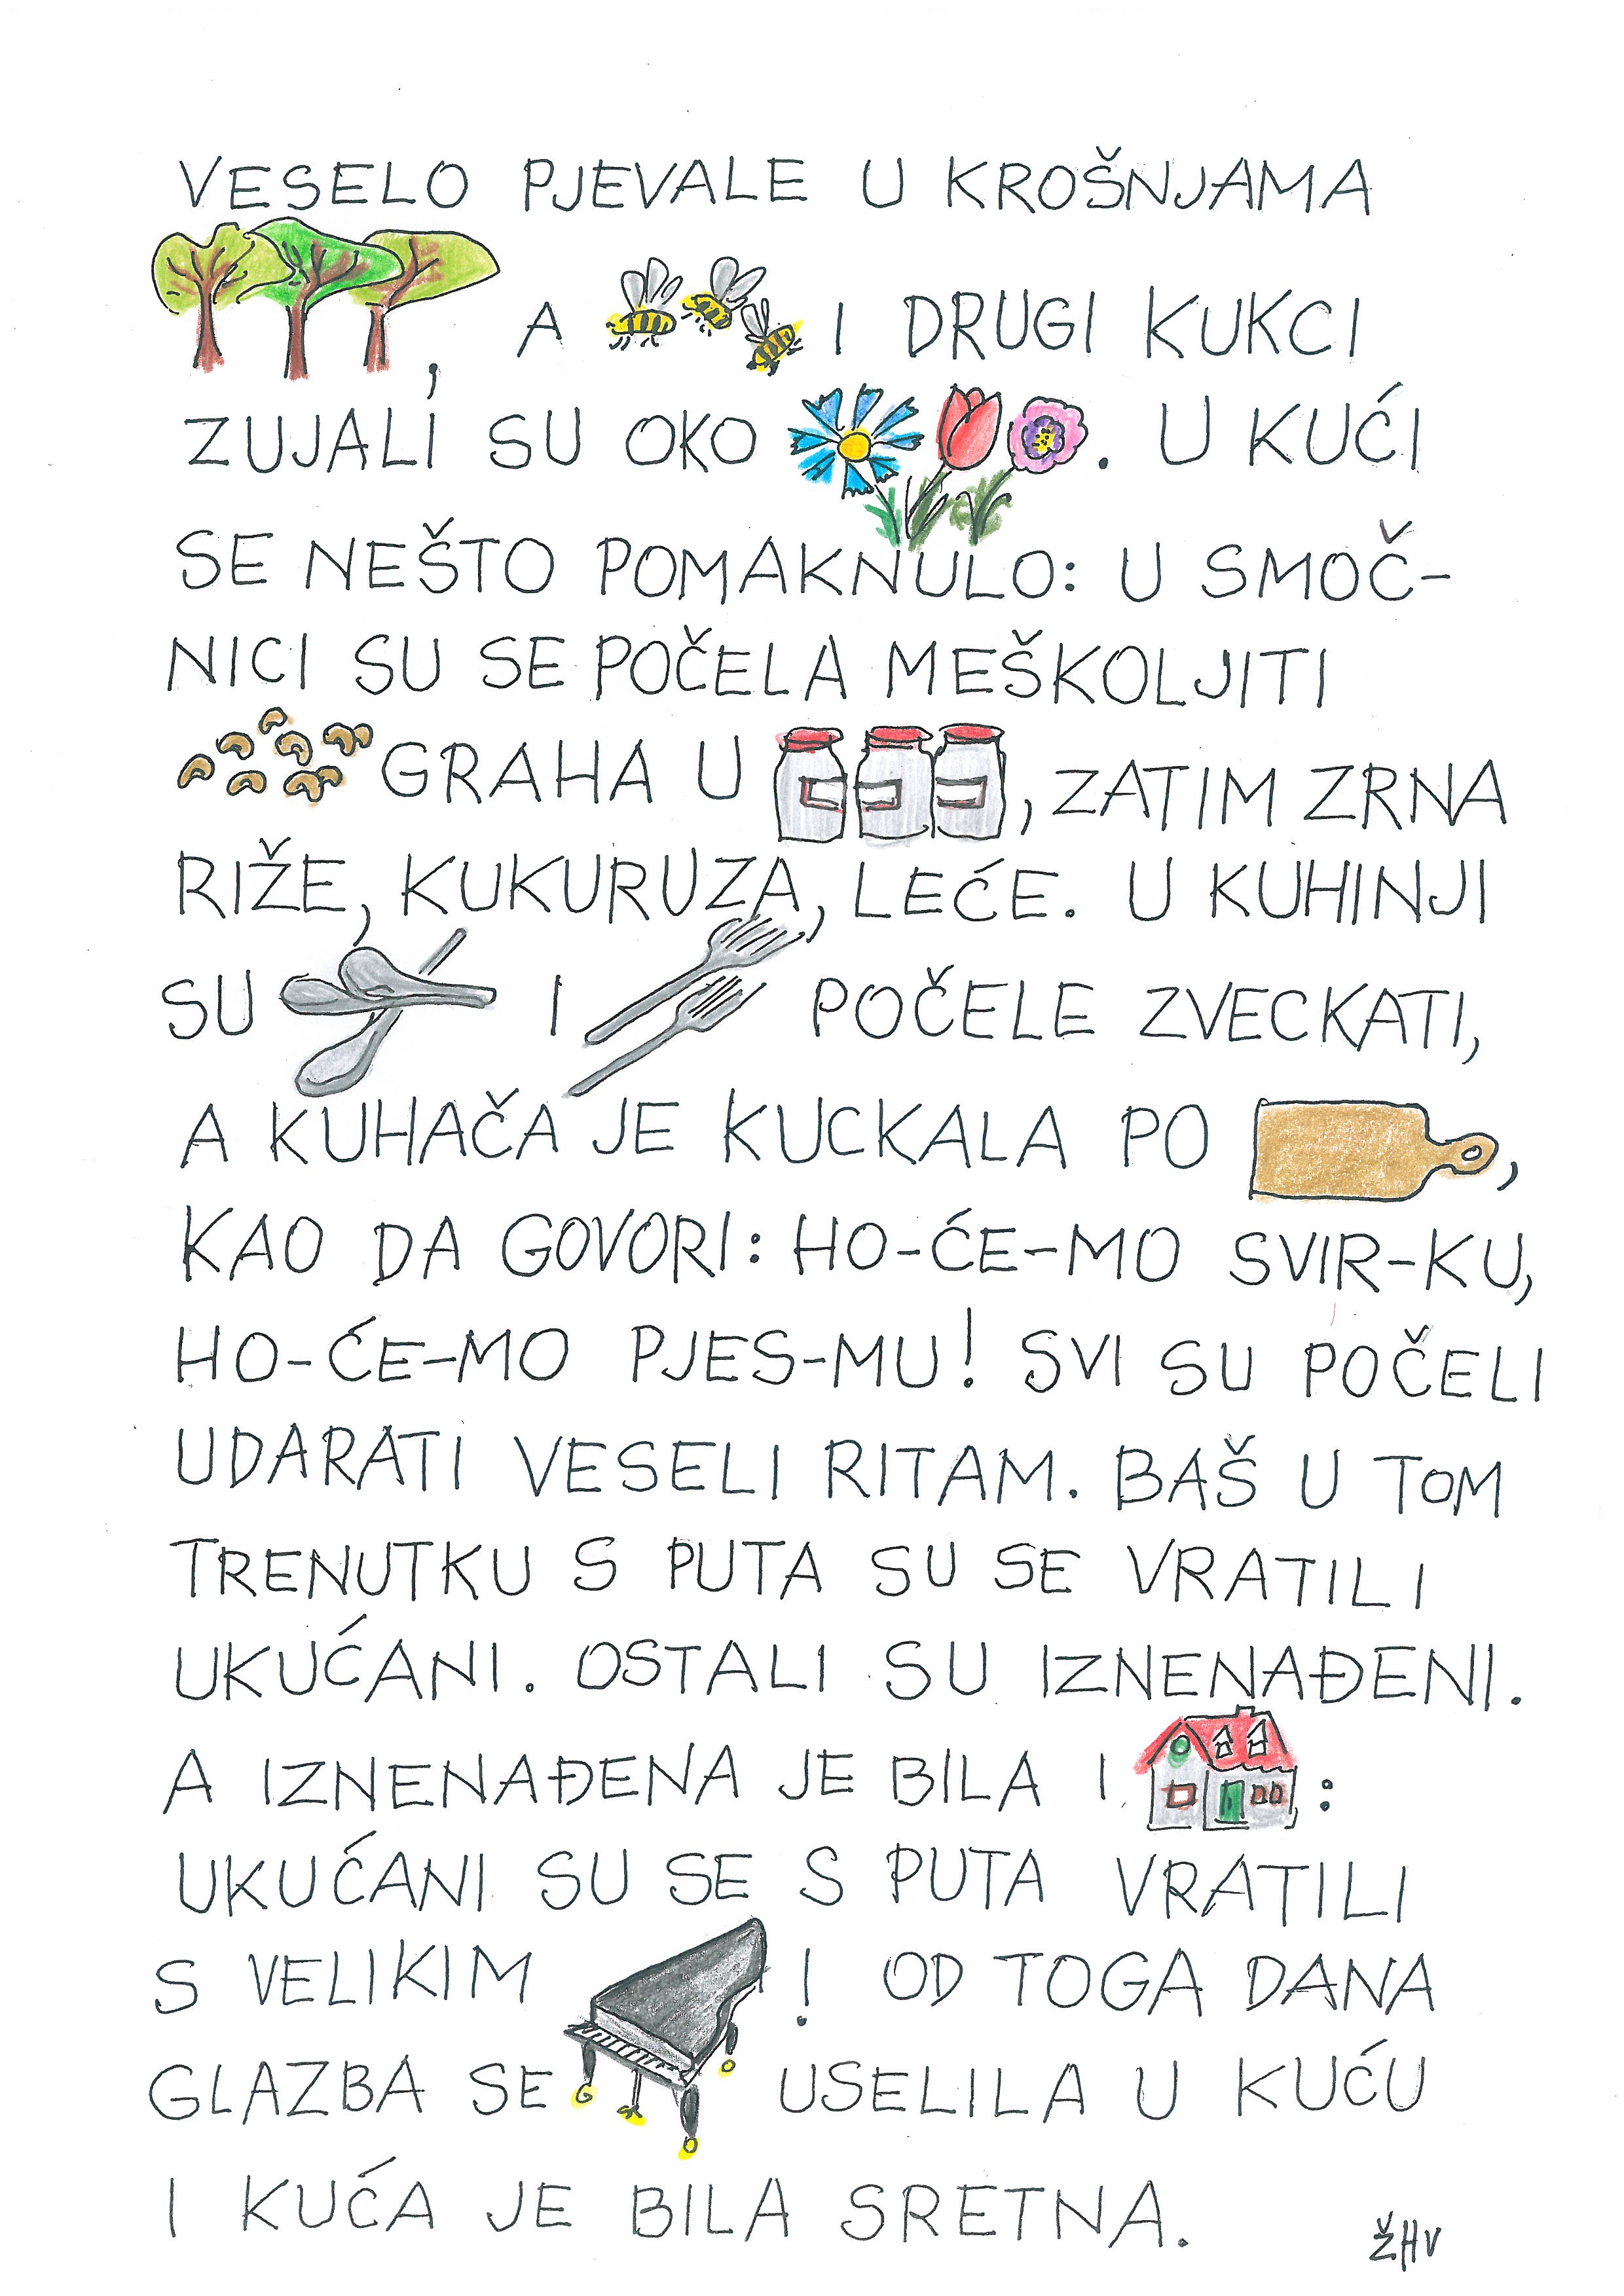 VESELO PJEVALE U KROŠNJAMA
, A I DRUGI KUKCI
ZUJALI SU OKO . U KUĆI
SE NEŠTO POMAKNULO: U SMOČ-
NICI SU SE POČELA MEŠKOLJITI
GRAHA U , ZATIM ZRNA
RIŽE, KUKURUZA, LEĆE. U KUHINJI
SU I POČELE ZVECKATI,
A KUHAČA JE KUCKALA PO ,
KAO DA GOVORI: HO-ĆE-MO SVIR-KU,
HO-ĆE-MO PJES-MU! SVI SU POČELI
UDARATI VESELI RITAM. BAŠ U TOM
TRENUTKU S PUTA SU SE VRATILI
UKUĆANI. OSTALI SU IZNENAĐENI.
A IZNENAĐENA JE BILA I :
UKUĆANI SU SE S PUTA VRATILI
S VELIKIM ! OD TOGA DANA
GLAZBA SE USELILA U KUĆU
I KUĆA JE BILA SRETNA.
ŽHV